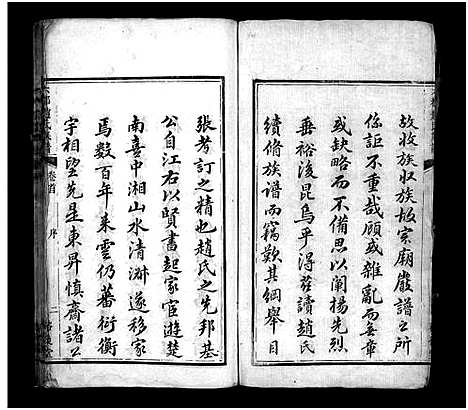 故收族收族故宗廟嚴譜之所
係詎不重哉顧或雜亂而無章
或缺略而不備思以闡揚先烈
垂裕後昆烏乎得茲讀趙氏
續脩族譜而竊歎其綱舉目
張考訂之精也趙氏之先邦基
公自江右以賢書起家宦遊楚
南喜中湘山水清淑遂移家
焉數百年来雲仍蕃衍衡
宇相望先是東昇慎齋諸公
卷首
序